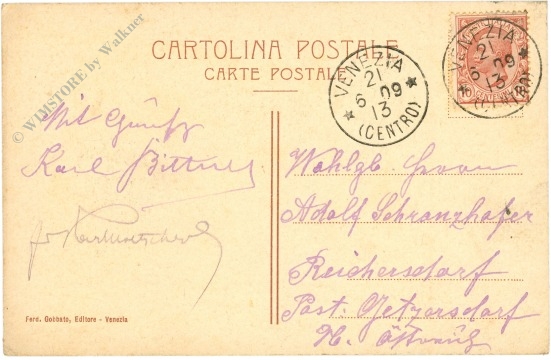 © WIMSTORE by Walkner
CARTOLINA POSTALE
CARTE POSTALE
VENEZIA
21
6 09
13
(CENTRO)
VENEZIA
21
6 09
13
(CENTRO)
Mit Gruß
Karl Bittner
Wohlgb Herrn
Adolf Schranzhofer
Reichersdorf
Post. Getzersdorf
N. Österreich
Ferd. Gobbato, Editore - Venezia